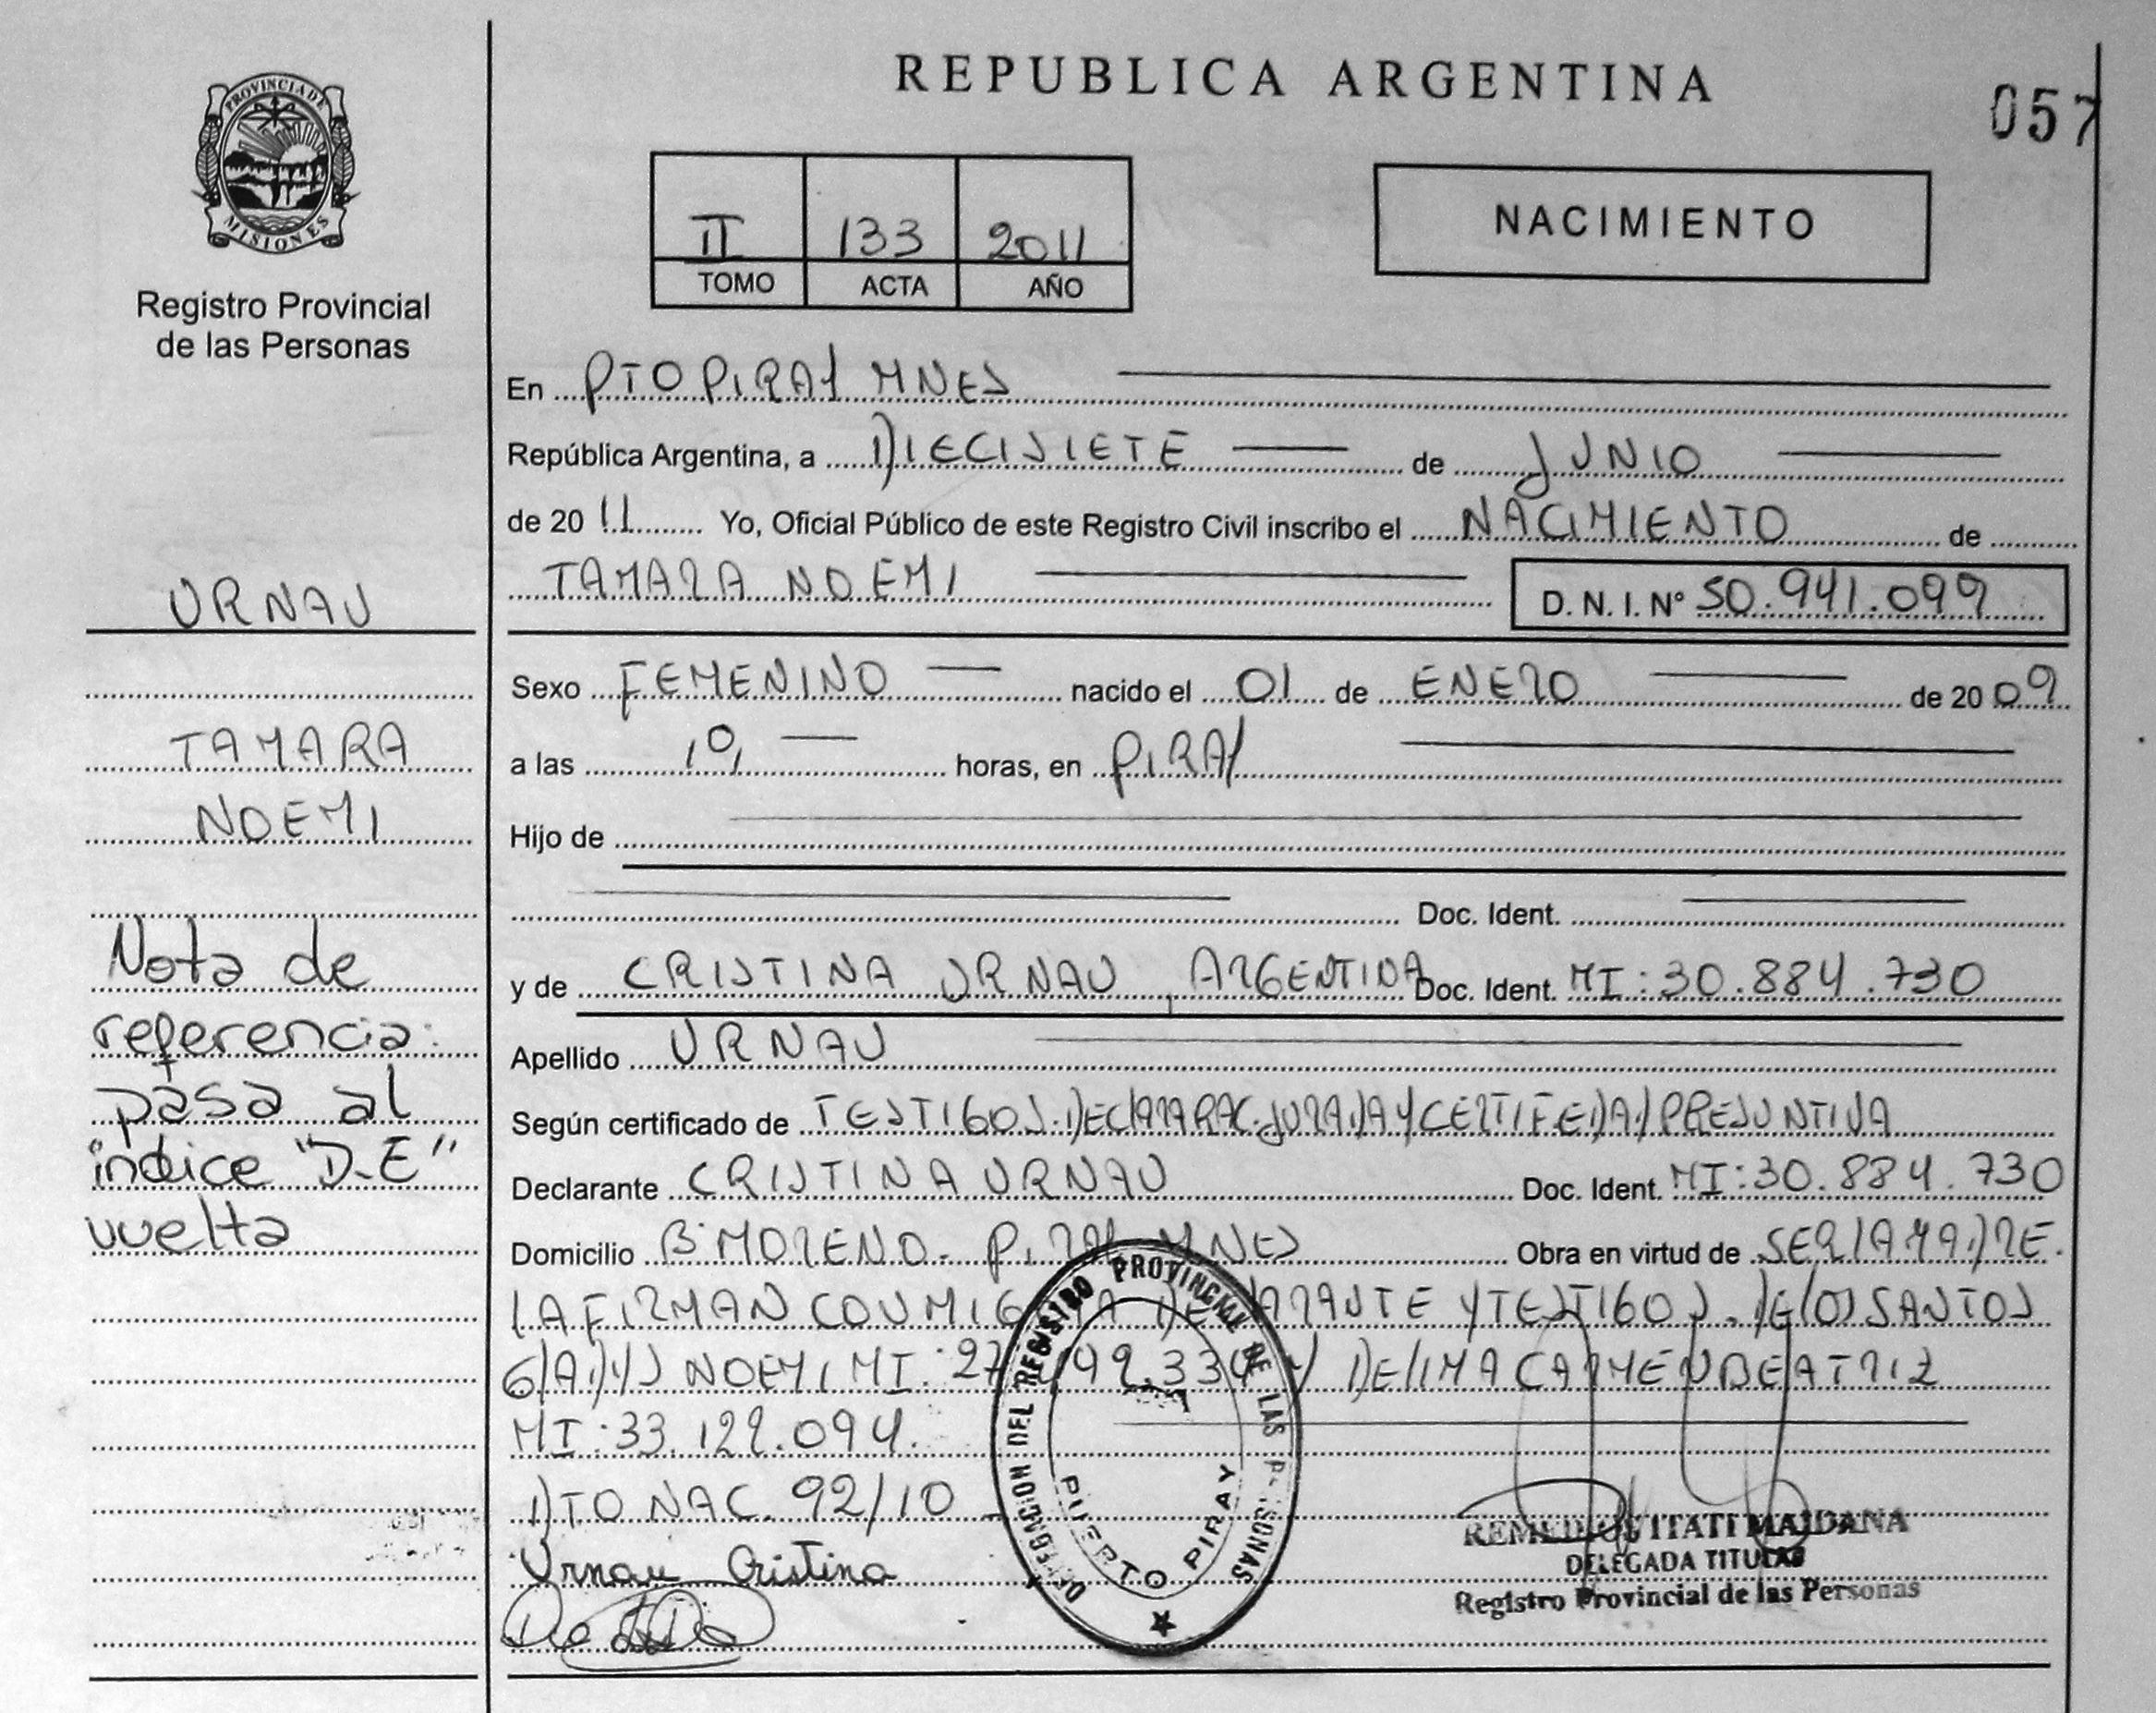 PROVINCIA DE
MISIONES
Registro Provincial
de las Personas
REPUBLICA ARGENTINA
057
II 133 2011
TOMO ACTA AÑO
NACIMIENTO
En PTO PIRAY MNES
República Argentina, a DIECISIETE de JUNIO
de 20 11 Yo, Oficial Público de este Registro Civil inscribo el NACIMIENTO de
TAMARA NOEMI D. N. I. Nº 50.941.099
Sexo FEMENINO nacido el 01 de ENERO de 20 09
a las 10, horas, en PIRAY
Hijo de
Doc. Ident.
y de CRISTINA URNAU, ARGENTINA Doc. Ident. MI: 30.884.730
Apellido URNAU
Según certificado de TESTIGOS. DECLARAC. JURADA Y CERTIF EDAD PRESUNTIVA
Declarante CRISTINA URNAU Doc. Ident. MI: 30.884.730
Domicilio Bº MORENO. PIRAY MNES Obra en virtud de SER LA MADRE.
LA FIRMAN CONMIGO LA DECLARANTE Y TESTIGOS. DE LOS SANTOS
GLADYS NOEMI MI: 27. Y DE LIMA CARMEN BEATRIZ
MI: 33.129.094.
DTO NAC. 92/10
Urnau Cristina
URNAU
TAMARA
NOEMI
Nota de
referencia:
pasa al
índice "D-E"
vuelta
DELEGACION DEL REGISTRO PROVINCIAL DE LAS PERSONAS
PUERTO PIRAY
REMEDIOS ITATI MAIDANA
DELEGADA TITULAR
Registro Provincial de las Personas